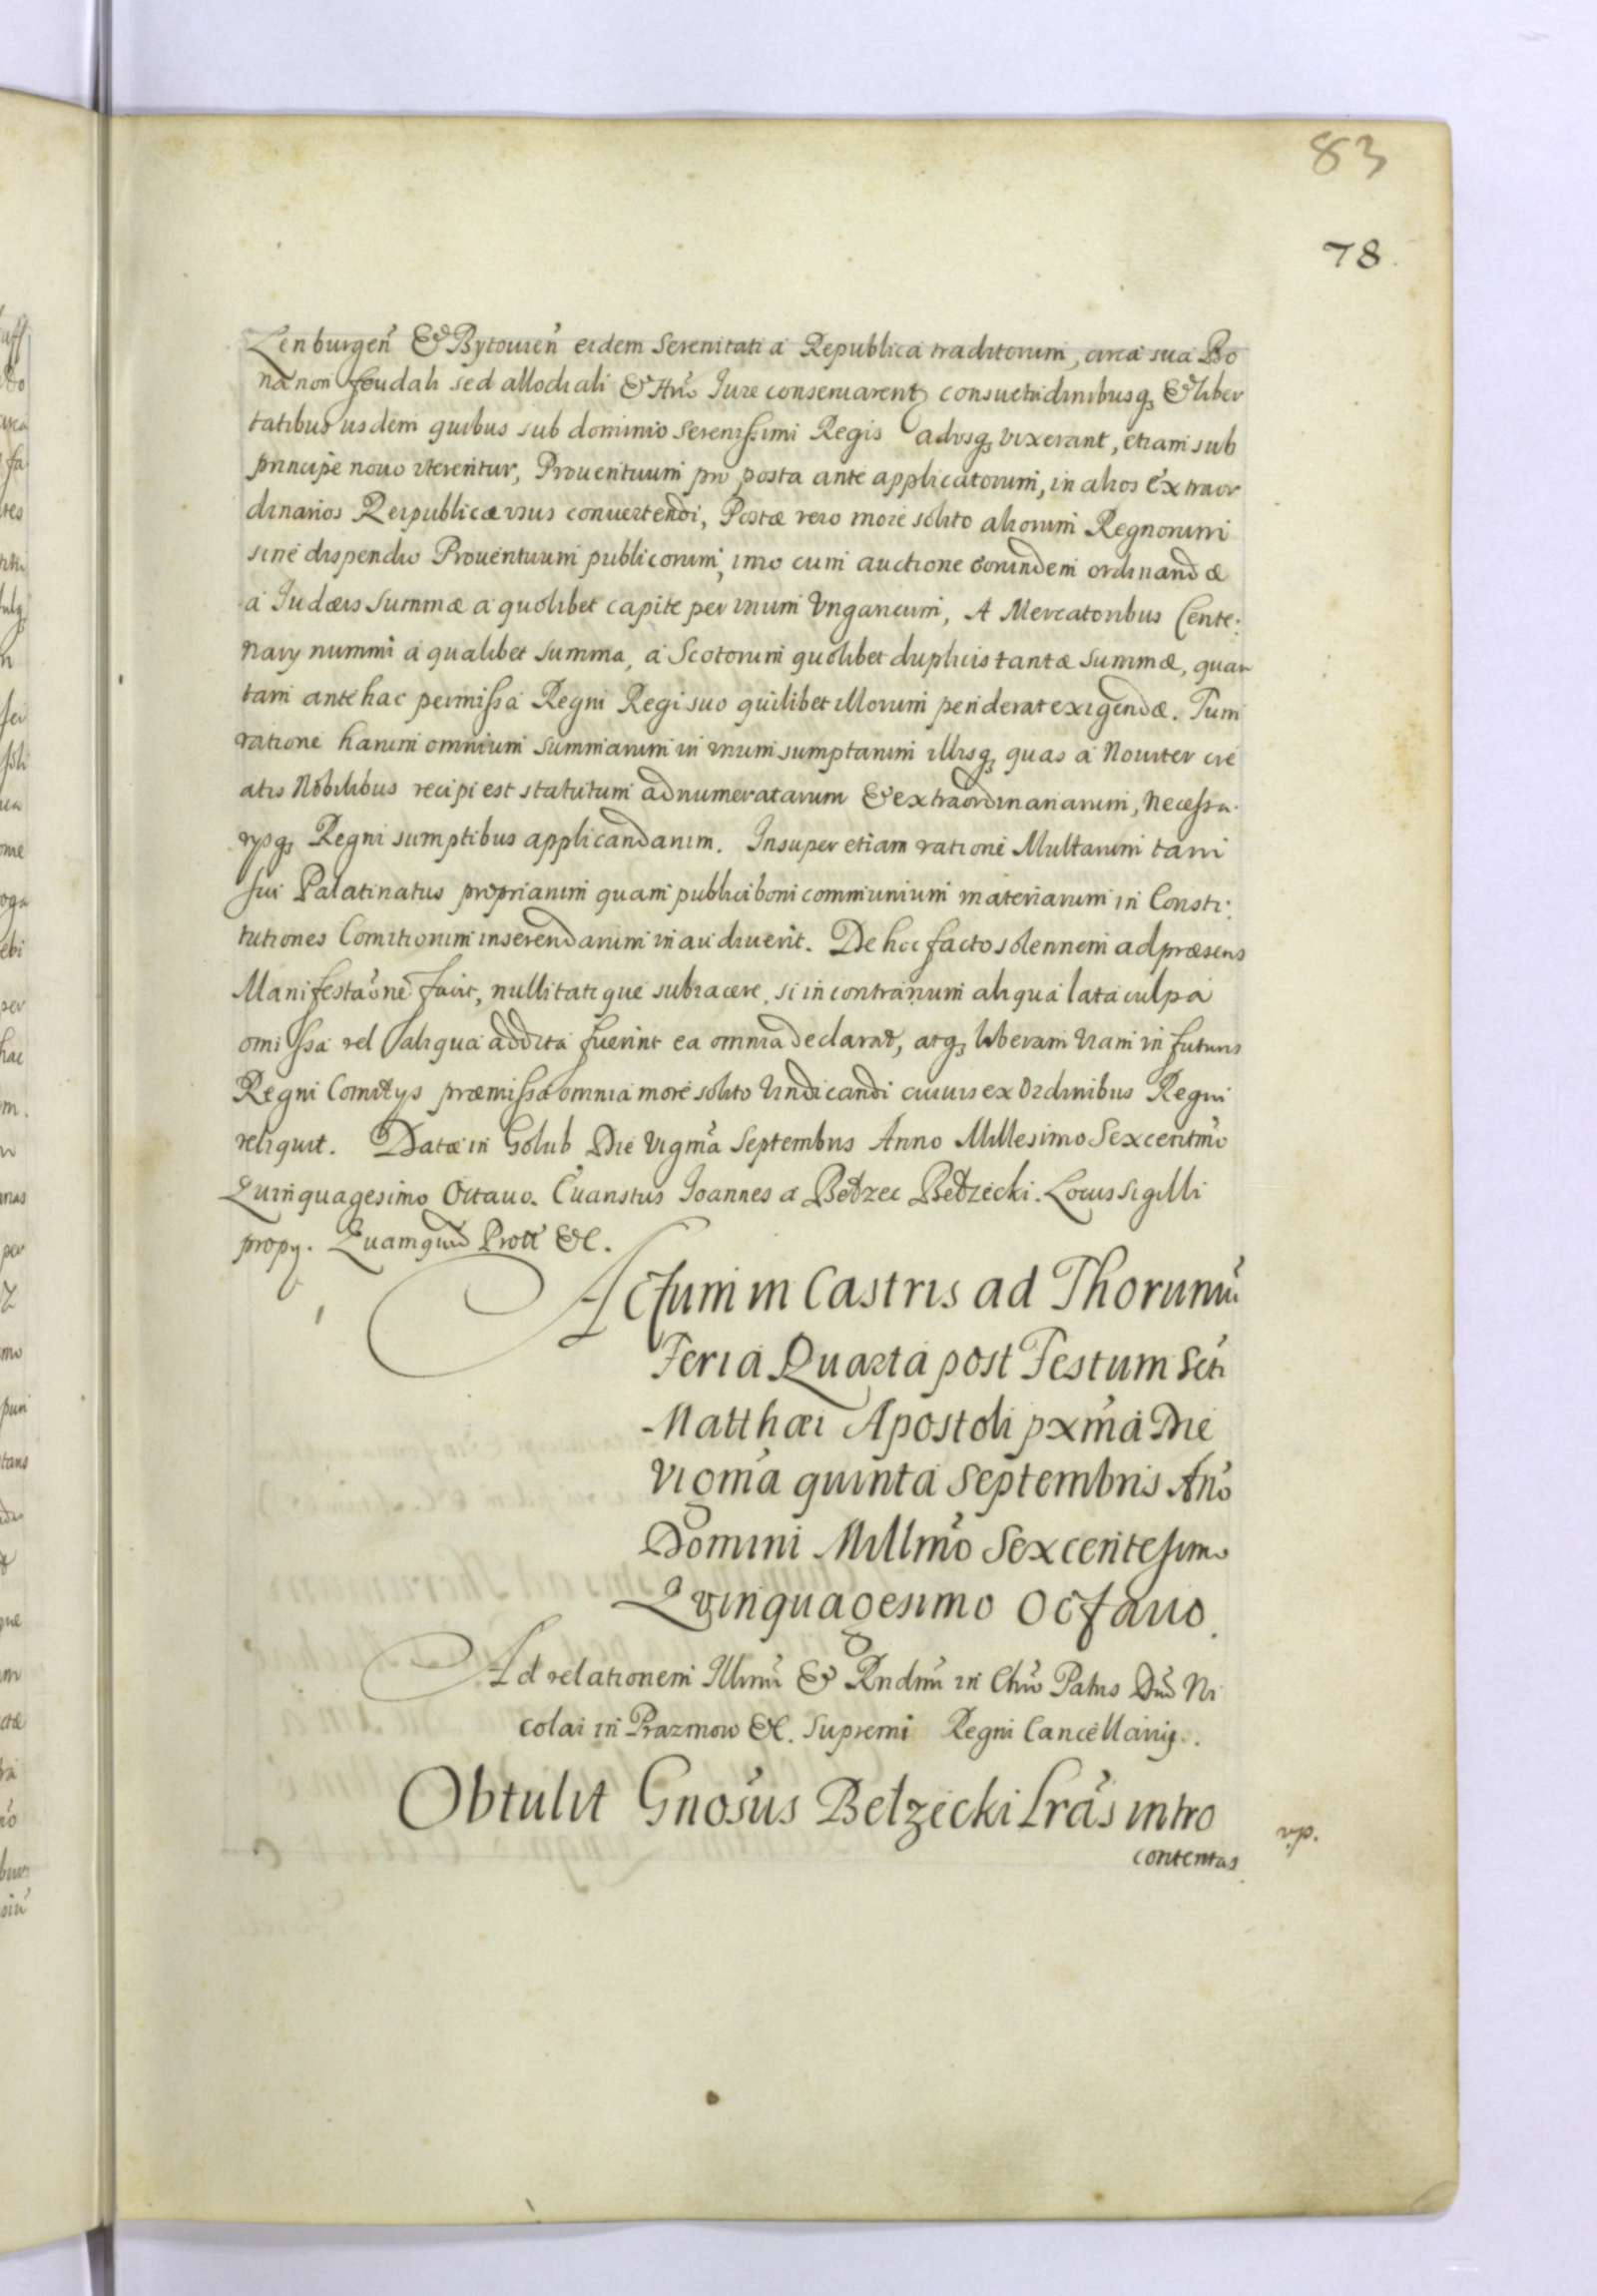 83
78.
Lenburgeñ & Bytouieñ eidem Serenitati á Republica traditorum, circa sua Bo
na non feudali sed allodiali & Hṙio Iure conseruarentr consuetudinibusq, & liber
tatibus iisdem quibus sub dominio Serenissimi Regis adusq, vixerant, etiam sub
principe nouo vterentur, Prouentuum pro posta ante applicatorum, in alios extraor
dinarios Reipublicæ vsus conuertendi, Postæ vero more solito aliorum Regnorum
sine dispendio Prouentuum publicorum, imo cum auctione eorundem ordinandæ
á Iudæis Summæ a quolibet capite per vnum Vngaricum, A Mercatoribus Cente:
nary nummi á qualibet summa, á Scotorum quolibet duplicis tantæ summæ, quan
tam ante hac permissa Regni Regi suo quilibet illorum penderat exigendæ. Tum
ratione harum omnium summarum in vnum sumptarum illisq, quas á Nouiter cre
atis Nobilibus recipi est statutum adnumeratarum & extraordinariarum, Necessa-
rysq, Regni sumptibus applicandarum. Insuper etiam ratione Multarum tam
sui Palatinatus propriarum quam publici boni communium materiarum in Consti:
tutiones Comitiorum inserendarum inaudiuerit. De hoc facto solennem ad præsens
Manifestaõne facit, nullitatique subiacere, si in contrarium aliqua lata culpa
omissa vel aliqua addita fuerint ea omnia declarat, atq, liberam viam in futuris
Regni Comitys præmissa omnia more solito vindicandi cuiuis ex Ordinibus Regni
reliquit. Datæ in Golub Die Vigma Septembris Anno Millesimo Sexcentmo
Quinquagesimo Octauo. Euaristus Ioannes á Bełzec Bełzecki. Locus sigilli
propy. Quamquid Prott &c.
Actum in Castris ad Thoruniu
Feria Quarta post Festum Scti
Matthæi Apostoli pxma Die
Vigma quinta Septembris Ano
Domini Millmo Sexcentesimo
Quinquagesimo Octauo.
Ad relationem Illmi & Rndmi in Chro Patris Dni Ni
colai in Prazmow &c. Supremi Regni Cancellarij.
Obtulit Gnosus Bełzecki Lras intro
contentas